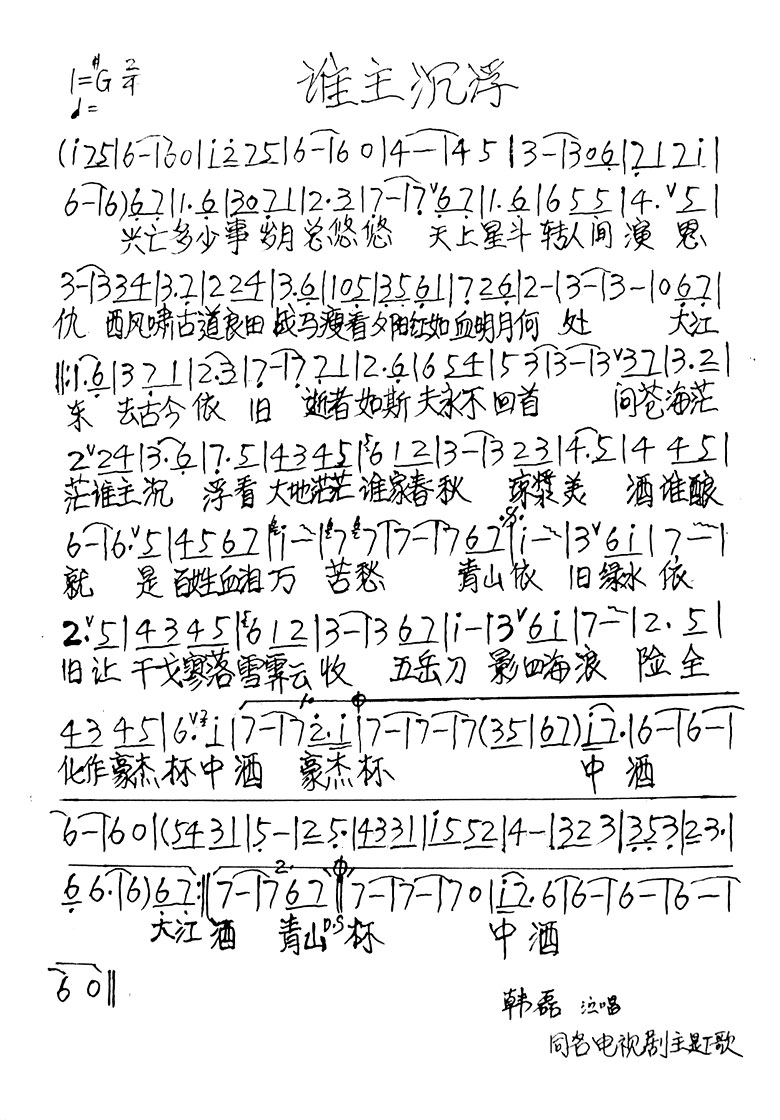 1=#G 2/4
谁主沉浮
(i 7 5|6-|6 0|i 2 7 5|6-|6 0|4-|4 5|3-|3 0 6|7 1 7 i|
6-|6) 6 7|1. 6|3 0 7 1|2. 3|7-|7 ∨ 6 7|1. 6|6 5 5|4. ∨ 5|
兴亡多少事 岁月总悠悠 天上星斗转人间 演 恩
3-|3 3 4|3. 7|2 2 4|3. 6|1 0 5|3 5 6 1|7 2 6|2-|3-|3-|0 6 7|
仇 西风啸古道良田 战马瘦看夕阳红如血明月何 处 大江
‖: 1. 6|3 7 1|2. 3|7-|7 7 1|2. 6|6 5 4|5 3|3-|3 ∨ 3 7|3. 2|
东 去古今依 旧 逝者如斯夫永不回首 问苍海茫
2 ∨ 2 4|3. 6|7. 5|4 3 4 5|6 1 2|3-|3 2 3|4. 5|4 4 5|
茫谁主沉 浮看大地茫茫谁家春秋 琼浆美 酒谁酿
6-|6. ∨ 5|4 5 6 7|i-|7 7|7-|7 6 7|i-|3 ∨ 6 i|7-|
就 是百姓血泪万 苦愁 青山依 旧绿水 依
2. ∨ 5|4 3 4 5|6 1 2|3-|3 6 7|i-|3 ∨ 6 i|7-|2. 5|
旧让 干戈寥落雪霁云收 五岳刀 影四海浪 险 全
4 3 4 5|6. ∨ i|7-|7 2. i|7-|7-|7 (3 5|6 7) i 7.|6-|6-|
化作豪杰杯中酒 豪杰杯 中 酒
6-|6 0|(5 4 3 1|5-|2 5.|4 3 3 1|i 5 5 2|4-|3 2 3|3 5 3|2 3.|
6 6.|6) 6 7:‖7-|7 6 7‖7-|7-|7 0|i 7. 6|6-|6-|6-|
大江 酒 青山 D.S 杯 中 酒
6 0‖
韩磊 演唱
同名电视剧主题歌